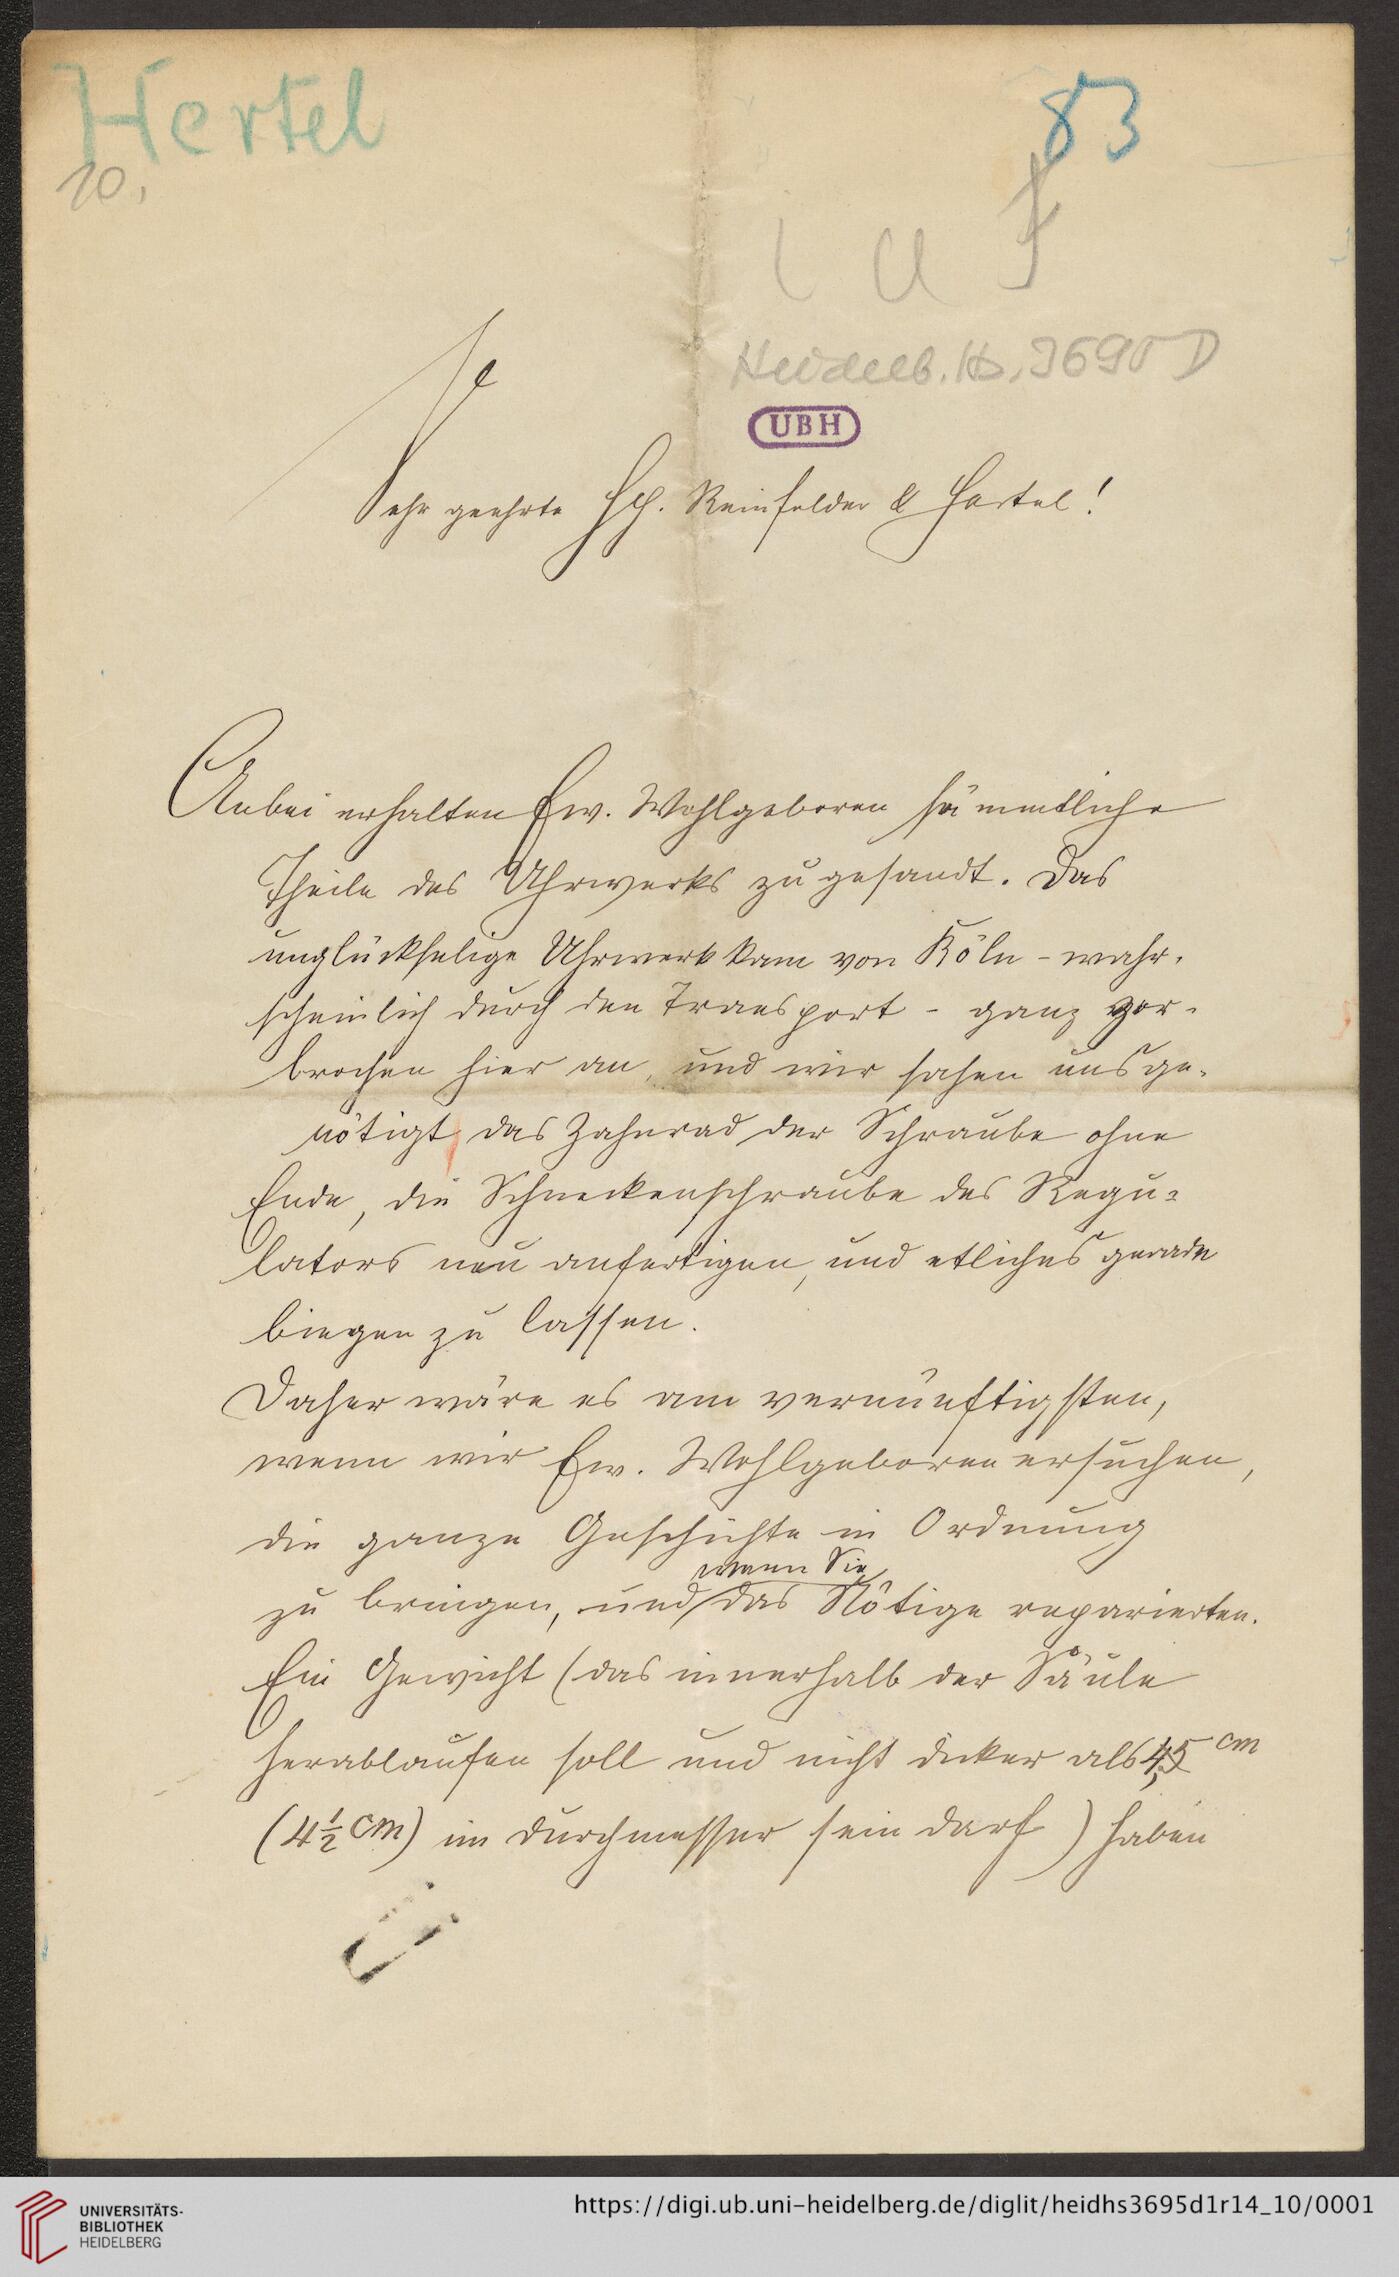 Hertel
83
10.
Heidelb. Hs. 3695 D
UBH
Sehr geehrte HH. Reinfelder & Hertel!
Anbei erhalten Ew. Wohlgeboren sämmtliche
Theile des Uhrwerks zugesandt. Das
unglückselige Uhrwerk kam von Köln - wahr-
scheinlich durch den Transport - ganz zer-
brochen hier an, und wir sahen uns ge-
nötigt das Zahnrad der Schraube ohne
Ende, die Schneckenschraube des Regu-
lators neu anfertigen, und etliches gerade
biegen zu lassen.
Daher wäre es am vernünftigsten,
wenn wir Ew. Wohlgeboren ersuchen,
die ganze Geschichte in Ordnung
wenn Sie
zu bringen, und das Nötige reparierten.
Ein Gewicht (das innerhalb der Säule
herablaufen soll und nicht dicker als 4,5 cm
(4 1/2 cm) im Durchmesser sein darf) haben
UNIVERSITÄTS-
BIBLIOTHEK
HEIDELBERG
https://digi.ub.uni-heidelberg.de/diglit/heidhs3695d1r14_10/0001